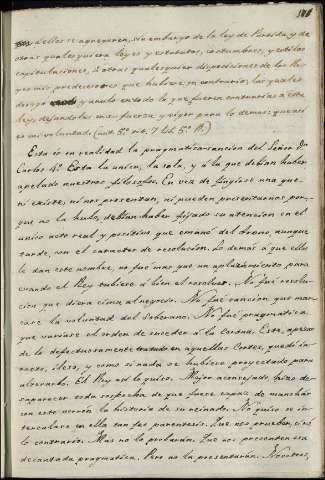 á ellos se agregaren, sin embargo de la ley de Partida y de
otras qualesquiera leyes y estatutos, costumbres, y estilos
capitulaciones, ú otras qualesquier disposiciones de los Re-
yes mis predecesores que hubiere en contrario, las quales
derogo y anulo en todo lo que fueren contrarias á esta
ley, dejandolas en su fuerza y vigor para lo demas; que asi
es mi voluntad (aut. 5º tit. 7 lib. 5º R.)
Esta es en realidad la pragmatica-sancion del Señor Dn
Carlos 4º. Esta la unica, la sola, y á la que debian haber
apelado nuestros filosofos. En vez de fingirse una que
ni existe, ni nos presentan, ni pueden presentarnos, por-
que no la hubo, debian haber fijado su atencion en el
unico acto real y positivo que emanó del trono, aunque
tarde, con el caracter de resolucion. Lo demas á que ellos
le dan este nombre, no fué mas que un aplazamiento para
cuando el Rey tubiese á bien el resolver. No fué resolu-
cion que diera cima al negocio. No fué sancion que mar-
case la voluntad del Soberano. No fué pragmatica
que variase el orden de suceder á la Corona. Este, apesar
de lo defectuosamente tratado en aquellas Cortes, quedó in-
tacto, ileso, y como si nada se hubiese proyectado para
alterarlo. El Rey no lo quiso. Mejor aconsejado, hizo de-
saparecer toda sospecha de que fuese capaz de manchar
con este borron la historia de su reinado. No quiso se in-
tercalara en ella tan feo parentesis. Que nos prueben, si nó
lo contrario. Mas no lo probarán. Que nos presenten esa
decantada pragmatica. Pero no la presentarán. Nosotros,